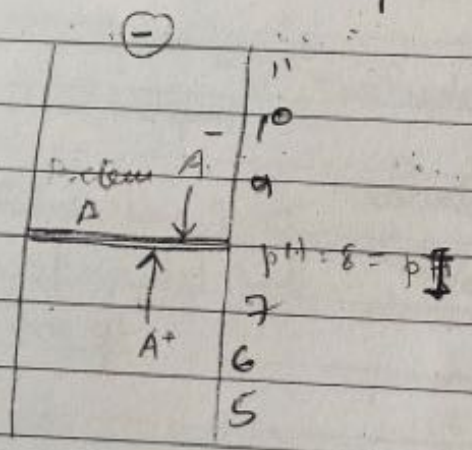 -
11
10
A-
9
A
pH = 8 = pI
7
A+
6
5